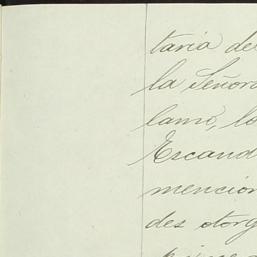 taria de
la Señora
lamo, lo
Escand
mencion
des otorg